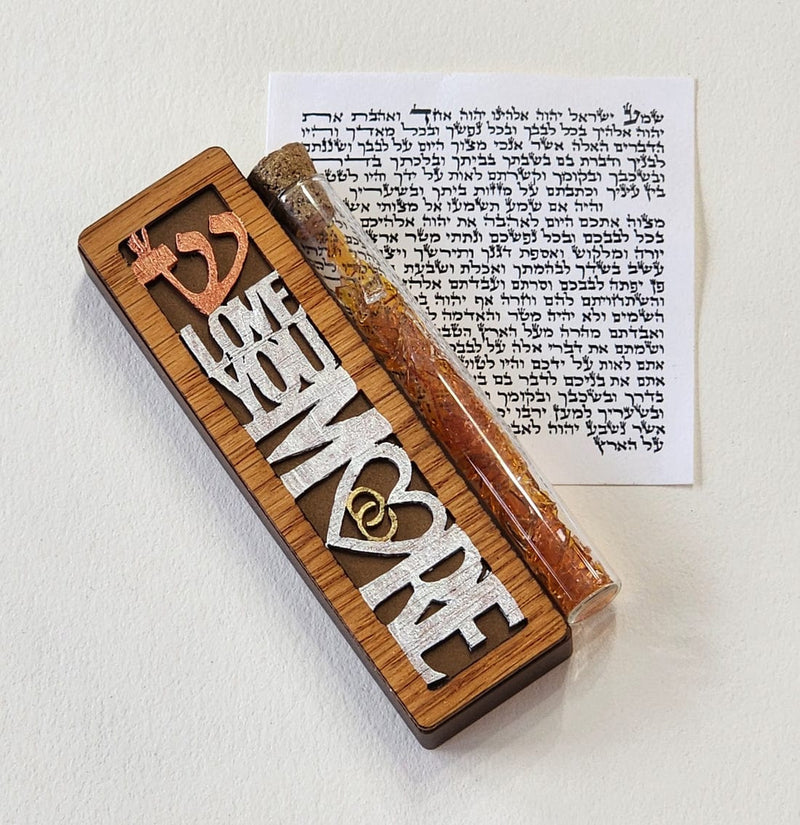 ש
LOVE
YOU
MORE
שמע ישראל יהוה אלהינו יהוה אחד ואהבת את
יהוה אלהיך בכל לבבך ובכל נפשך ובכל מאדך והיו
הדברים האלה אשר אנכי מצוך היום על לבבך ושננתם
לבניך ודברת בם בשבתך בביתך ובלכתך בדרך
ובשכבך ובקומך וקשרתם לאות על ידך והיו
בין עיניך וכתבתם על מזזות ביתך ובשעריך
והיה אם שמע תשמעו אל מצותי אשר
מצוה אתכם היום לאהבה את יהוה אלהיכם
בכל לבבכם ובכל נפשכם ונתתי מטר
יורה ומלקוש ואספת דגנך ותירשך
עשב בשדך לבהמתך ואכלת ושבעת
פן יפתה לבבכם וסרתם ועבדתם
והשתחויתם להם וחרה אף יהוה
השמים ולא יהיה מטר והאדמה
ואבדתם מהרה מעל הארץ הטבה
ושמתם את דברי אלה על
אתם לאות על ידכם והיו
אתם את בניכם לדבר בם
בדרך ובשכבך ובקומך
ובשעריך למען ירבו
אשר נשבע יהוה
על הארץ